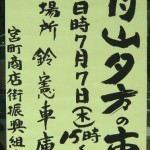 舟山夕方の市
日時7月7日(木)15時〜
場所 鈴憲車庫
宮町商店街振興組